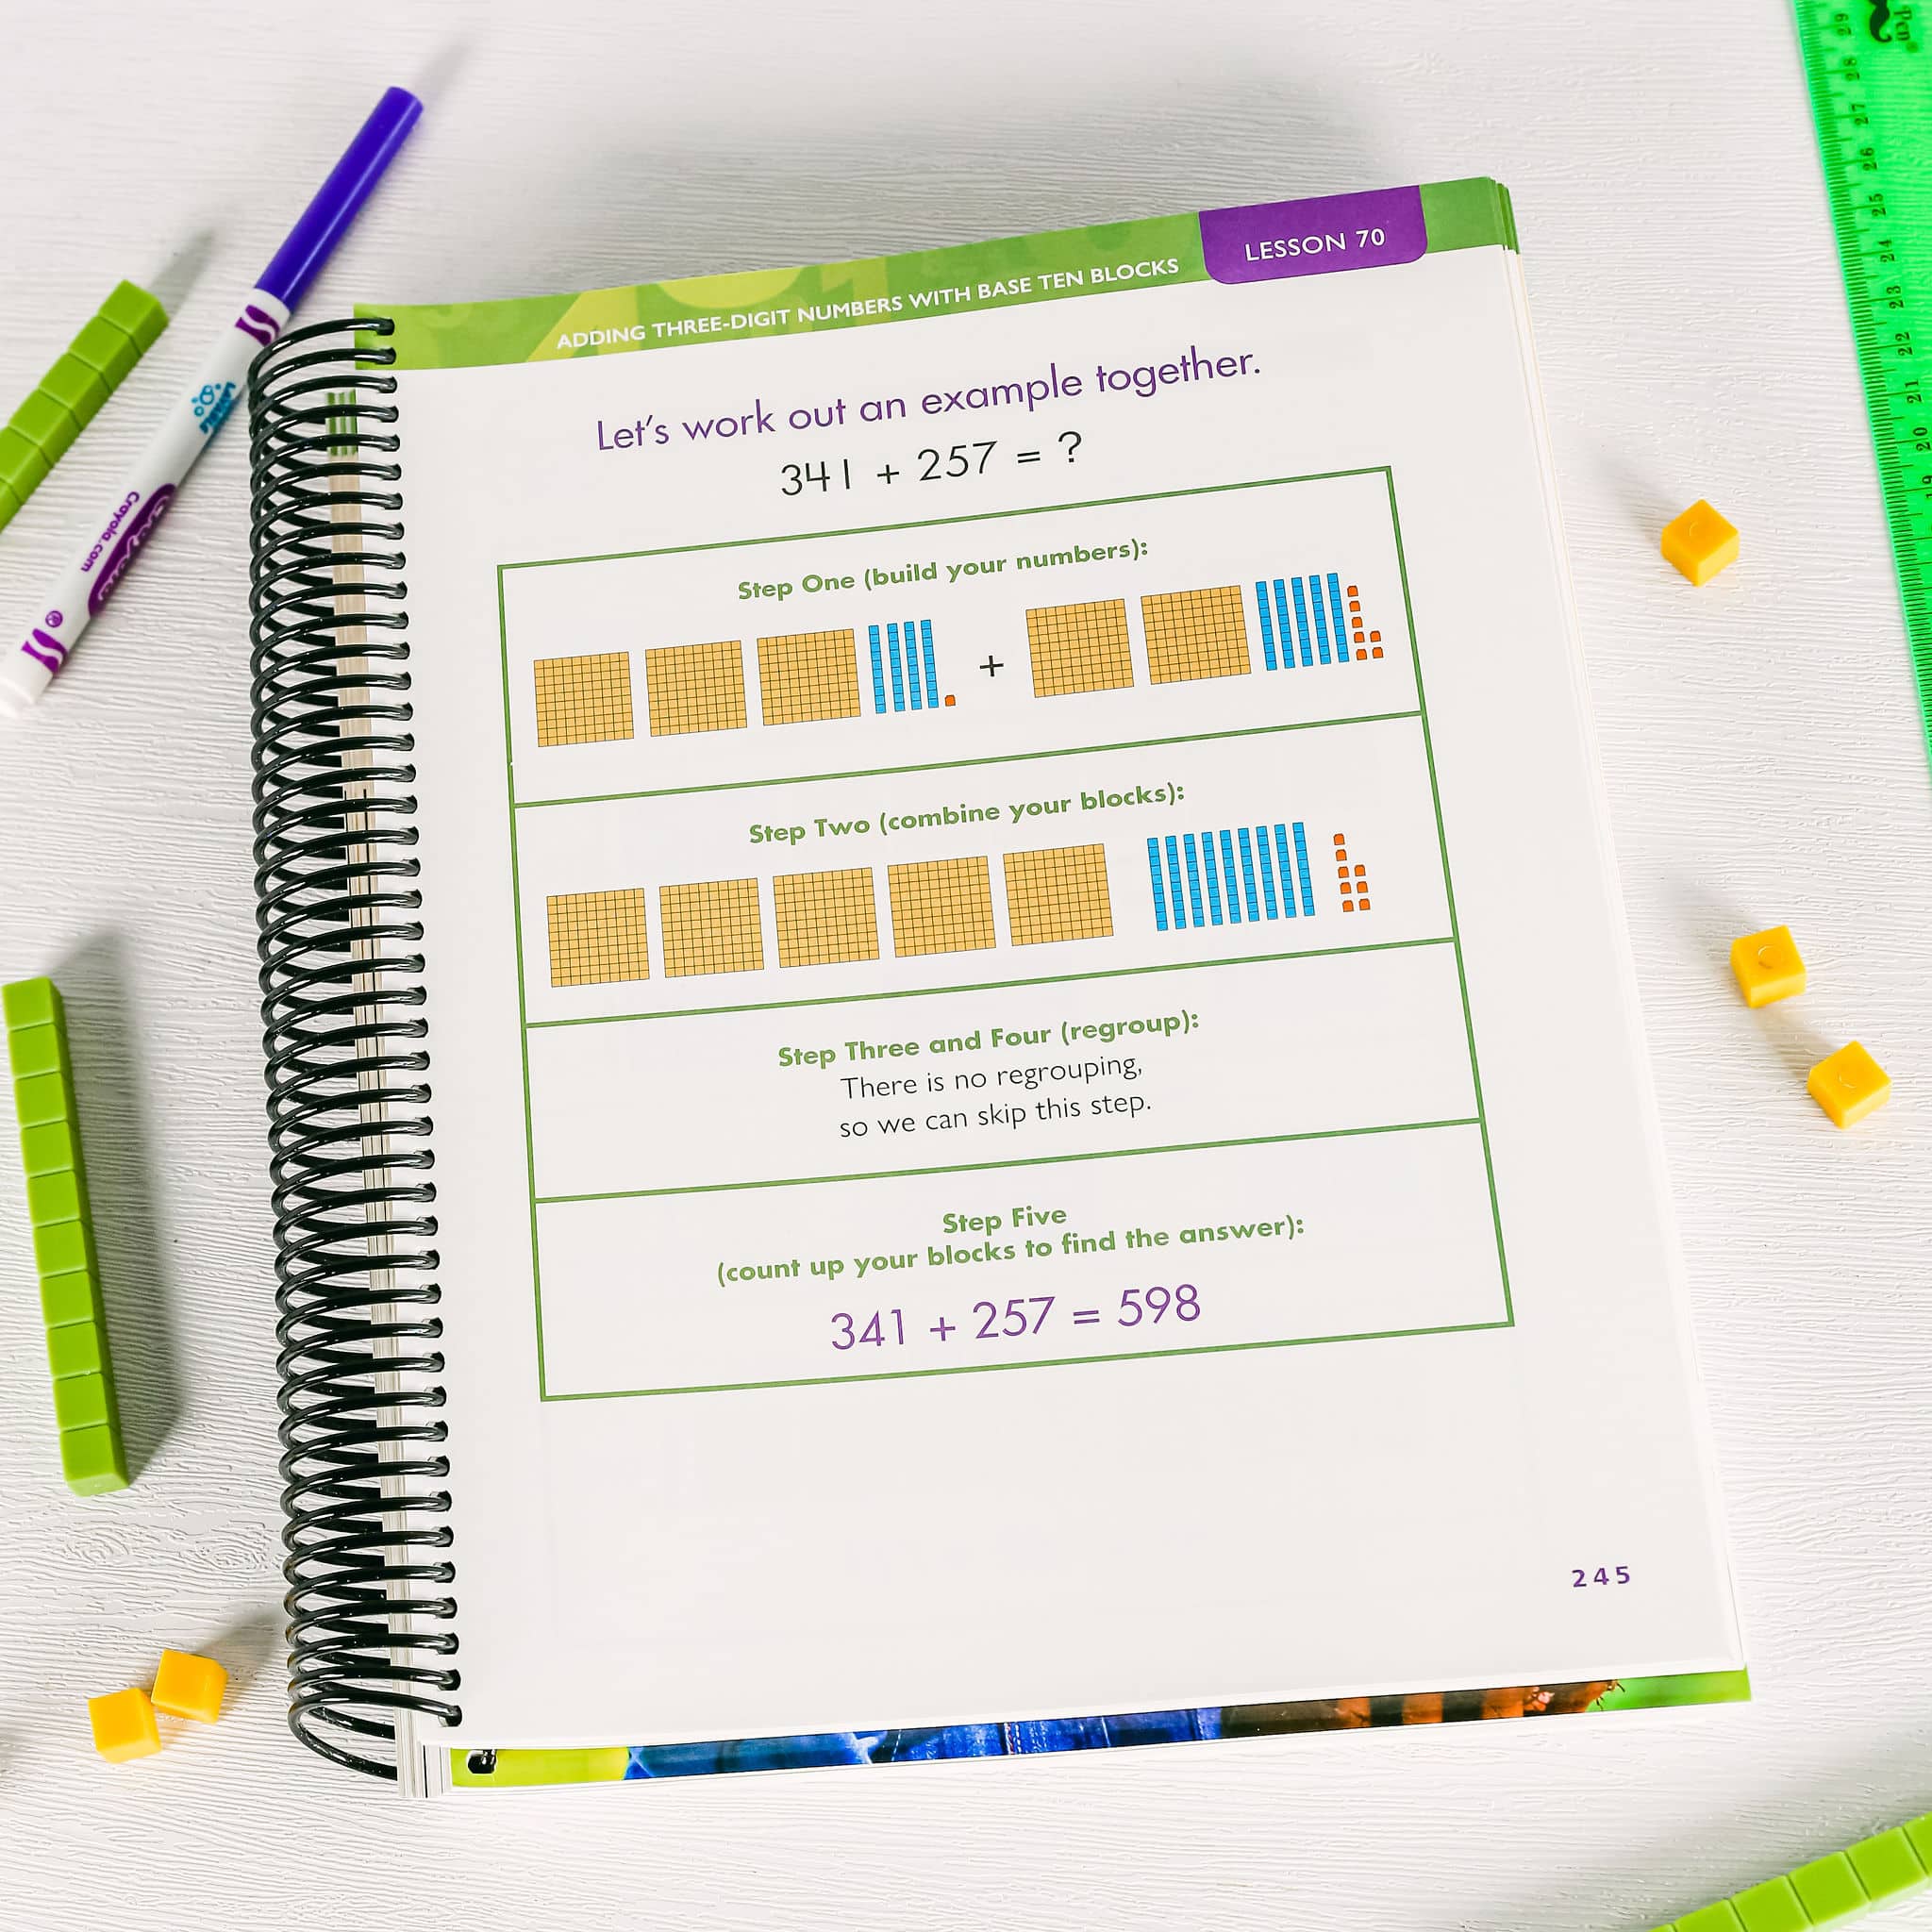 ADDING THREE-DIGIT NUMBERS WITH BASE TEN BLOCKS
LESSON 70
Let's work out an example together.
341 + 257 = ?
Step One (build your numbers):
+
Step Two (combine your blocks):
Step Three and Four (regroup):
There is no regrouping,
so we can skip this step.
Step Five
(count up your blocks to find the answer):
341 + 257 = 598
245
Crayola.com
Pen
29
28
27
26
25
24
23
22
21
20
19